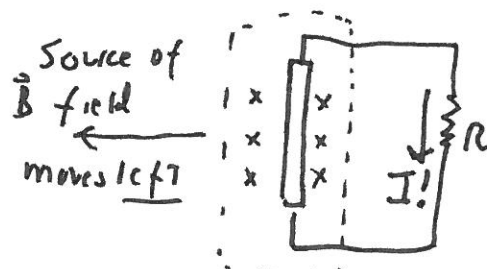 Source of
B⃗ field
moves left
x x
x x
x x
I!
R